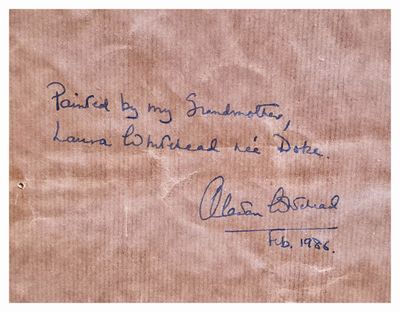 Painted by my Grandmother,
Laura Whitehead née Doke.
Alastair Whitehead
Feb. 1986.